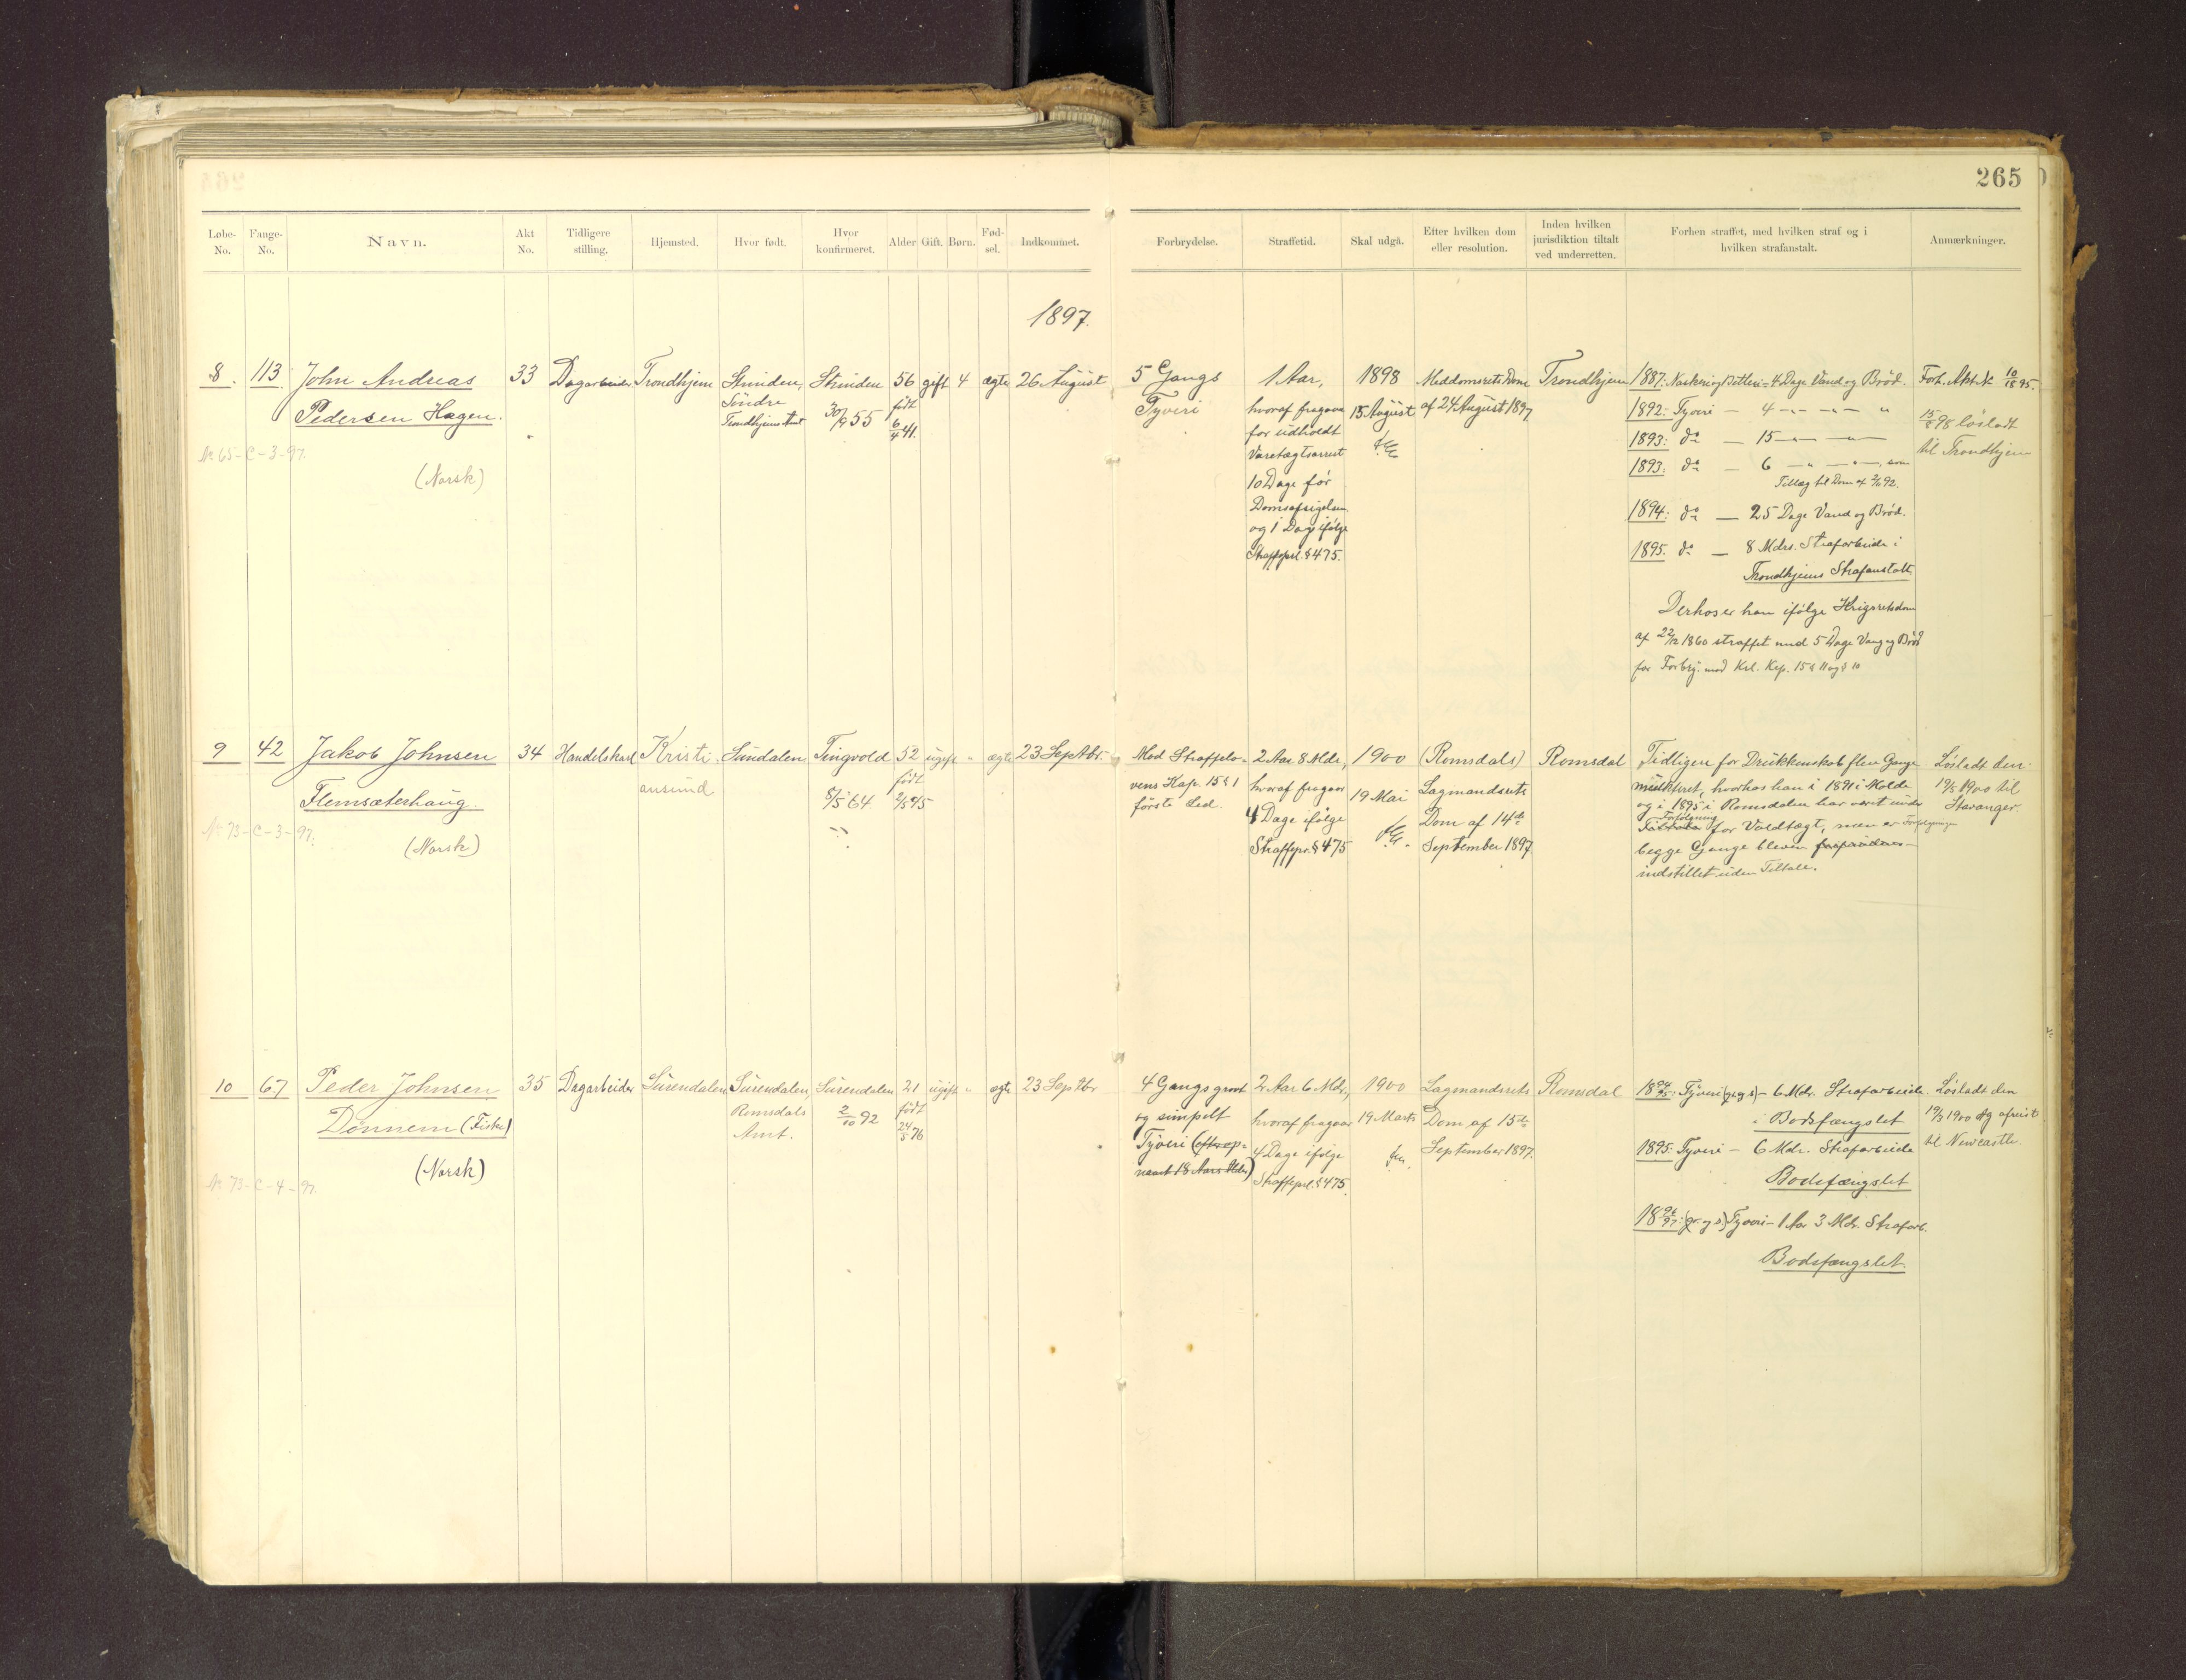 265
Løbe-No.
Fange-No.
Navn.
Akt No.
Tidligere stilling.
Hjemsted.
Hvor født.
Hvor konfirmeret.
Alder
Gift.
Børn.
Fød-sel.
Indkommet.
Forbrydelse.
Straffetid.
Skal udgå.
Efter hvilken dom eller resolution.
Inden hvilken jurisdiktion tiltalt ved underretten.
Forhen straffet, med hvilken straf og i hvilken strafanstalt.
Anmærkninger.
1897.
8.
113.
John Andreas
Pedersen Hagen.
(Norsk)
No 65-C-3-97.
33
Dagarbeider
Trondhjem
Strinden,
Söndre
Trondhjems Amt
Strinden
30/9 55
56
født
6/4 41.
gift
4
ægte
26 August
5 Gangs
Tyveri
1 Aar,
hvoraf fragaar
for udholdt
Varetægtsarrest
10 Dage før
Domsafsigelsen
og 1 Dag ifølge
Straffeprl. § 475.
1898
15 August
Meddomsrets Dom
af 24 August 1897
Trondhjem
1887: Naskeri og Betleri - 4 Dage Vand og Brød.
1892: Tyveri — 4 -"- — "
1893: do — 15 -"- — "
1893: do — 6 -"- — " —, som
Tillæg til Dom af 92.
1894: do — 25 Dage Vand og Brød.
1895. do — 8 Mdrs. Strafarbeide i
Trondhjems Strafanstalt
Derhos er han ifølge Krigsretsdom
af 22/12 1860 straffet med 5 Dage Vand og Brød
for Forbry. mod Krl. Kap. 15 § 11 og § 10
Forh. Akt
10/1895.
15/8 98 løsladt
til Trondhjem
9
42
Jakob Johnsen
Flemsæterhaug.
(Norsk)
No 73-C-3-97.
34
Handelskarl
Kristi-
ansund
Sundalen
Tingvold
8/5 64
52
født
2/5 45
ugift
"
ægte
23 Septbr.
Mod Straffelo-
vens Kap. 15 § 1
første Led.
2 Aar 8 Mdr.,
hvoraf fragaar
4 Dage ifølge
Straffepr. § 475
1900
19 Mai
(Romsdals)
Lagmandsrets
Dom af 14de
September 1897.
Romsdal
Tidligere for Drukkenskab flere Gange
mulkteret, hvorhos han i 1891 i Molde
og i 1895 i Romsdalen har været under
Forfølgning
for Voldtægt, men er Forfølgningen
begge Gange bleven
indstillet uden Tiltale.
Løsladt den
19/5 1900 til
Stavanger
10
67
Peder Johnsen
Dönnem (Fiske)
(Norsk)
No 73-C-4-97.
35
Dagarbeider
Surendalen
Surendalen,
Romsdals
Amt.
Surendalen
2/10 92
21
født
24/5 76
ugift
"
ægte
23 Septbr
4 Gangs grovt
og simpelt
Tyveri (efter op-
naaet 18 Aars Alder)
2 Aar 6 Mdr.,
hvoraf fragaar
4 Dage ifølge
Straffeprl. § 475.
1900
19 Marts
Lagmandsrets
Dom af 15de
September 1897.
Romsdal
18 94/95: Tyveri (gr. og s) - 6 Mdr. Strafarbeide
i Bodsfængslet
1895: Tyveri - 6 Mdr. Strafarbeide
Bodsfængslet
18 96/97: (gr. og s) Tyveri - 1 Aar 3 Mdr. Strafarb.
Bodsfængslet
Løsladt den
19/3 1900 og afreist
til Newcastle.